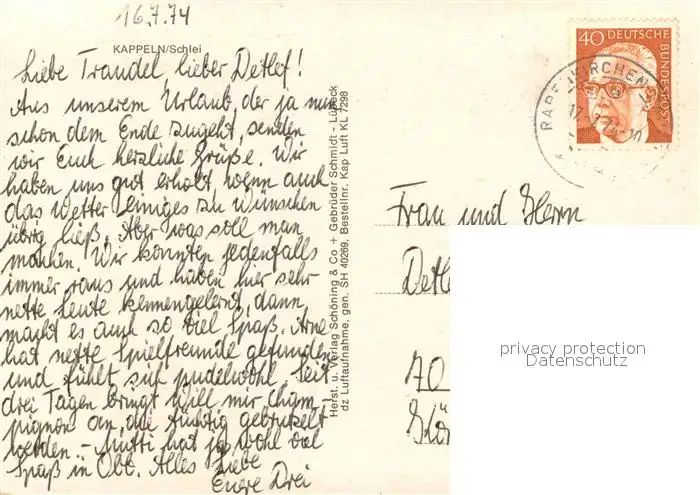 16.7.74
KAPPELN/Schlei
Liebe Traudel, lieber Detlef!
Aus unserem Urlaub, der ja nun
schon dem Ende zugeht, senden
wir Euch herzliche Grüße. Wir
haben uns gut erholt, wenn auch
das Wetter einiges zu wünschen
übrig ließ. Aber was soll man
machen. Wir konnten jedenfalls
immer raus und haben hier sehr
nette Leute kennengelernt, dann
macht es auch so viel Spaß. Arne
hat nette Spielfreunde gefunden
und fühlt sich pudelwohl. Seit
drei Tagen bringt Willi mir Cham-
pignon an, die tüchtig gebrutzelt
werden. - Mutti hat ja wohl viel
Spaß in Obb. Alles Liebe
Euere Drei
Herst. u. Verlag Schöning & Co + Gebrüder Schmidt - Lübeck
dz Luftaufnahme, gen. SH 40269, Bestellnr. Kap Luft KL 7298
40 DEUTSCHE
BUNDESPOST
RABENKIRCHEN
Frau und Herrn
Detle
privacy protection
Datenschutz